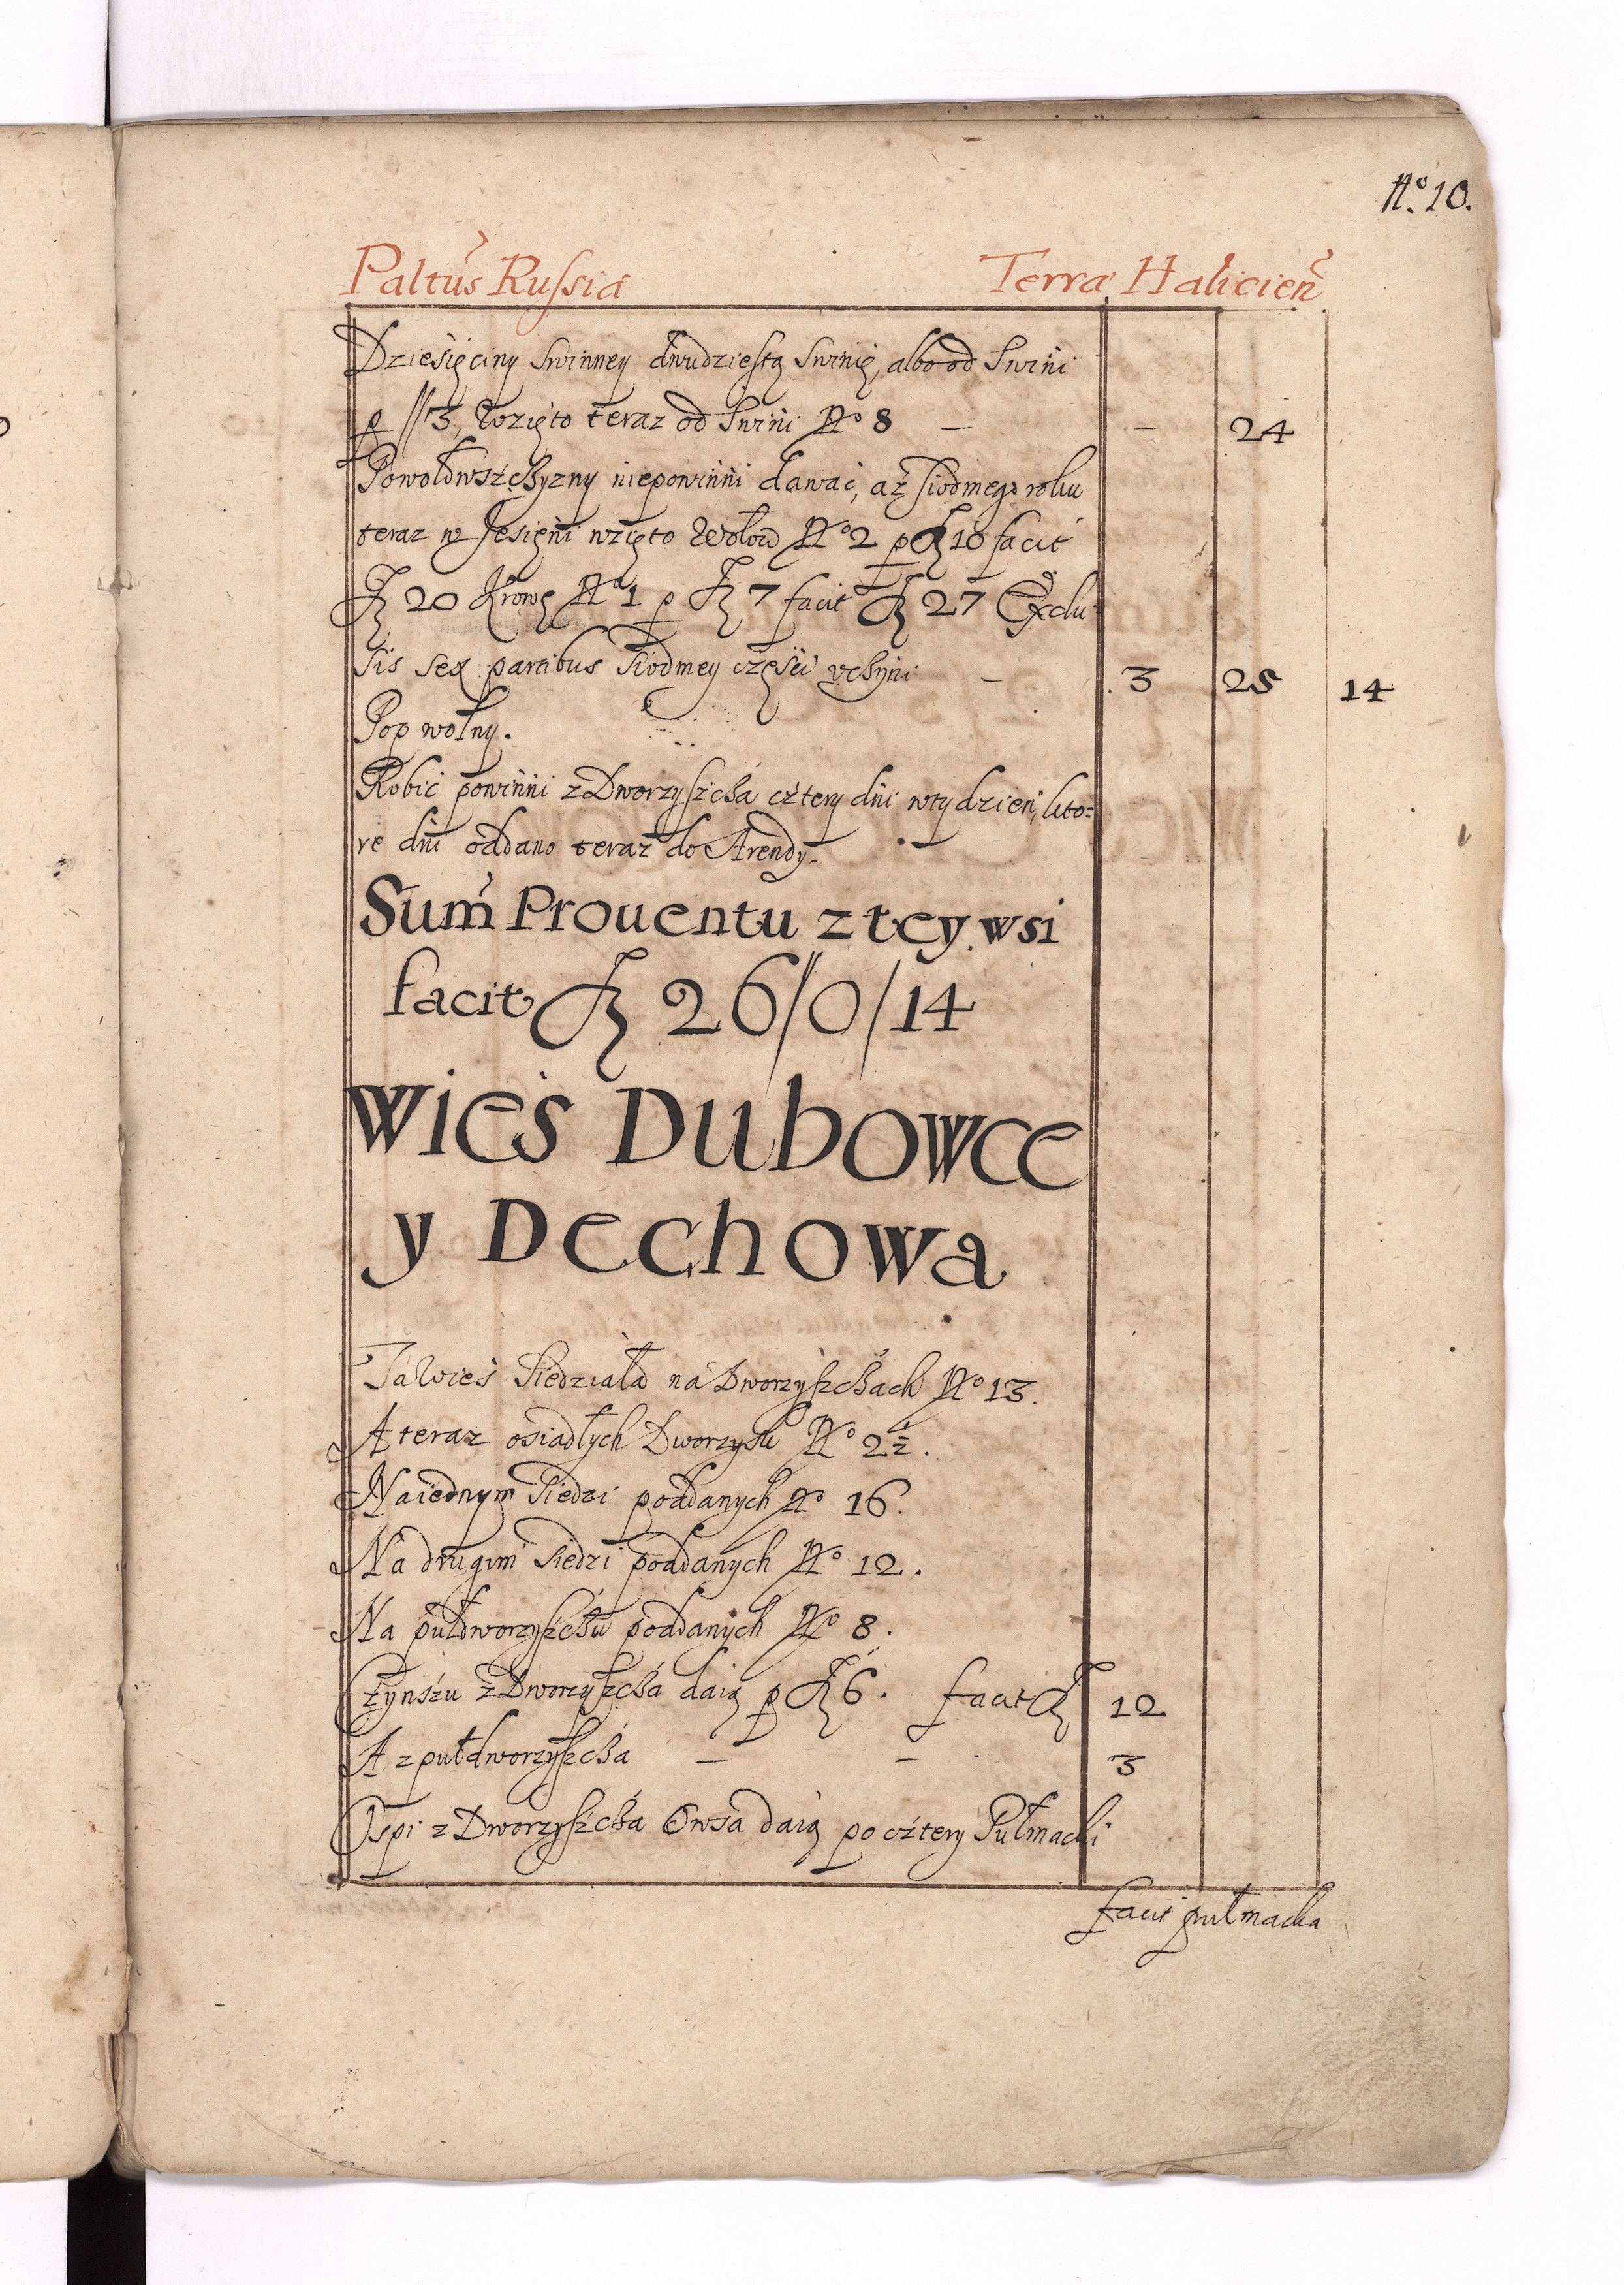 No. 10.
Paltũs Russia Terra Halicien̄
Dziesięciny swinney dwudziestą swinię, albo od swini
p //3, wzięto teraz od swini No 8 – – 24
Powołowszchyzny niepowinni dawać, aż siodmego roku
teraz w Jesięni wzięto wołow No 2 p fl 10 facit
fl 20 krowę No 1 p fl 7 facit fl 27 Exclu-
sis sex partibus siodmey części vchyni – 3 25 14
Pop wolny.
Robić powinni z Dworzyszcha cztery dni wtydzień, kto=
re dni oddano teraz do Arendy.
Sum̃ Prouentu z tey wsi
facit fl 26/0/14
Wies Dubowce
y Dechowa
Ta Wies siedziała na Dworzyszchach No 13.
A teraz osiadłych Dworzysk No 2½.
Naiednym siedzi poddanych No 16.
Na drugim siedzi poddanych No 12.
Na pułdworzyszchu poddanych No 8.
Czynszu z Dworzyszcha daią p fl 6. facit fl 12
A z pułdworzyszcha – – 3
Ospi z Dworzyszcha Owsa daią po cztery Pułmacki
facit pułmacka